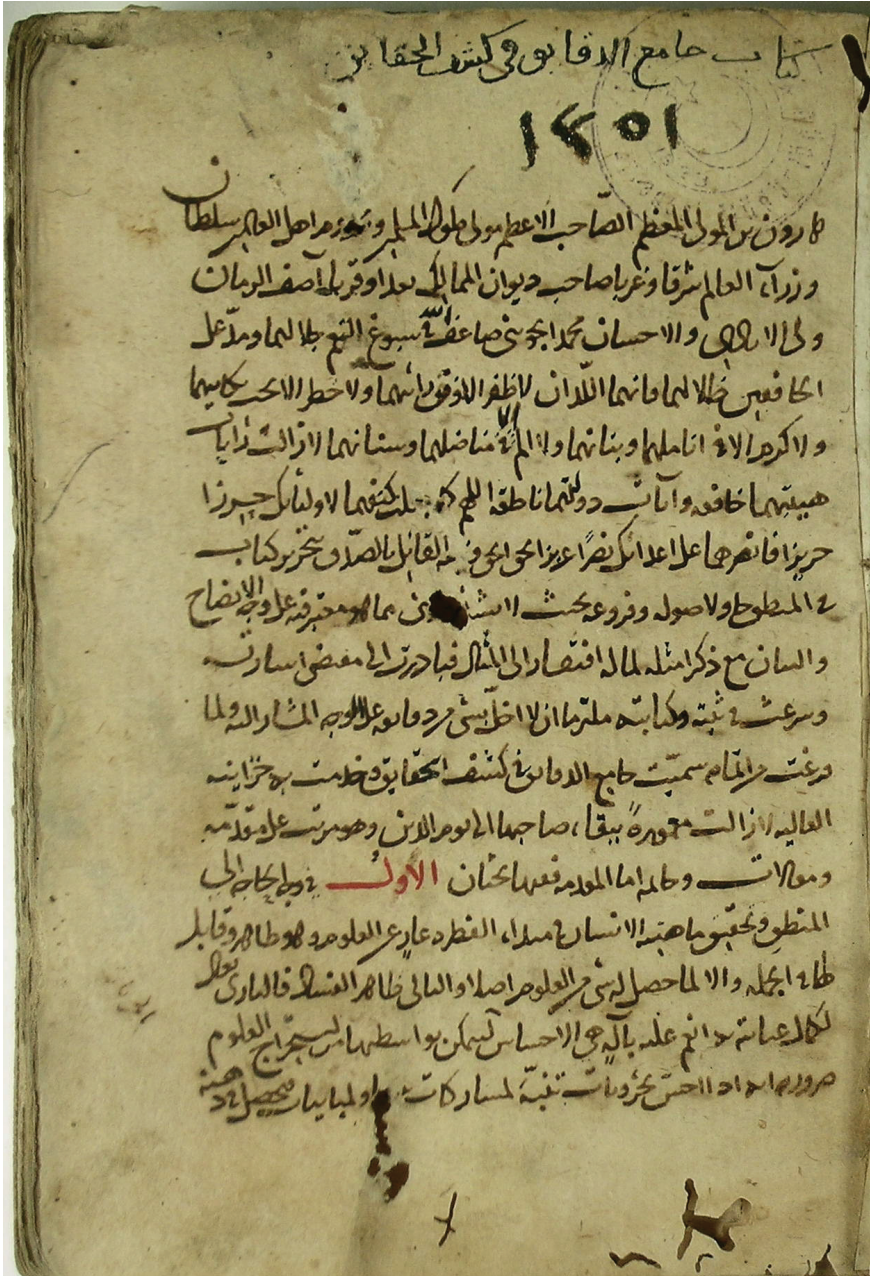 كتاب جامع الدقايق في كشف الحقايق
١٣٥١
هارون بن المولى المعظم الصّاحب الاعظم مولى ملوك اهل العالم سلطان
وزرآء العالم شرقا وغربا صاحب ديوان الممالك بعدا وقربا آصف الزمان
ولى الايادى والاحسان محمد الجوينى ضاعف الله سبوغ النعم عليهما ومدّ على
الخافقين ظلالهما فانهما اللذان لا ظفر الا وفق رائهما ولا خطر الا تحت ركابهما
ولا كرم الا فى اناملهما وبنانهما ولا الا فى مناصلهما وسنانهما لا زالت رايات
هيبتهما خافقه وآيات دولتهما ناطقه اللهم كما جعلت كنفهما لاوليائك حرزا
حريزا فانصرهما على اعدائك نصرًا عزيزا بحق الحق القائل بالصدق بتحرير كتاب
فى المنطق حاو لاصوله وفروعه بحيث لا يشذ مما هو معتبر فيه على وجه الايضاح
والبيان مع ذكر امثله لما له افتقار الى المثال فبادرت الى مقتضى اشارته
وشرعت فى ثبته وكتابته ملتزما ان لا اخلّ بشى من دقايقه على الوجه المشار اليه ولما
فرغت من اتمامه سميّته جامع الدقايق فى كشف الحقايق وخدمت به خزاينه
العاليه لا زالت معمورةً ببقاء صاحبها الى يوم الدين وهو مرتب على مقدّمه
ومقالات وخاتمه اما المقدمه ففيها بحثان الاول فى وجه الحاجه الى
المنطق وتحقيق ماهيته الانسان فى مبداء الفطره عارٍ عن العلوم وهو ظاهر وقابل
لها فى الجمله والا لما حصل له شى من العلوم اصلا والتالى ظاهر الفساد فالبارى تعالى
لكمال عنايته به انعم عليه بآلة هى الاحساس ليتمكن بواسطتها من استخراج العلوم
ضرورة انه اذا احسّ بجزويات تنبّه لمشاركات ومباينات فيحصل فى ذهنه